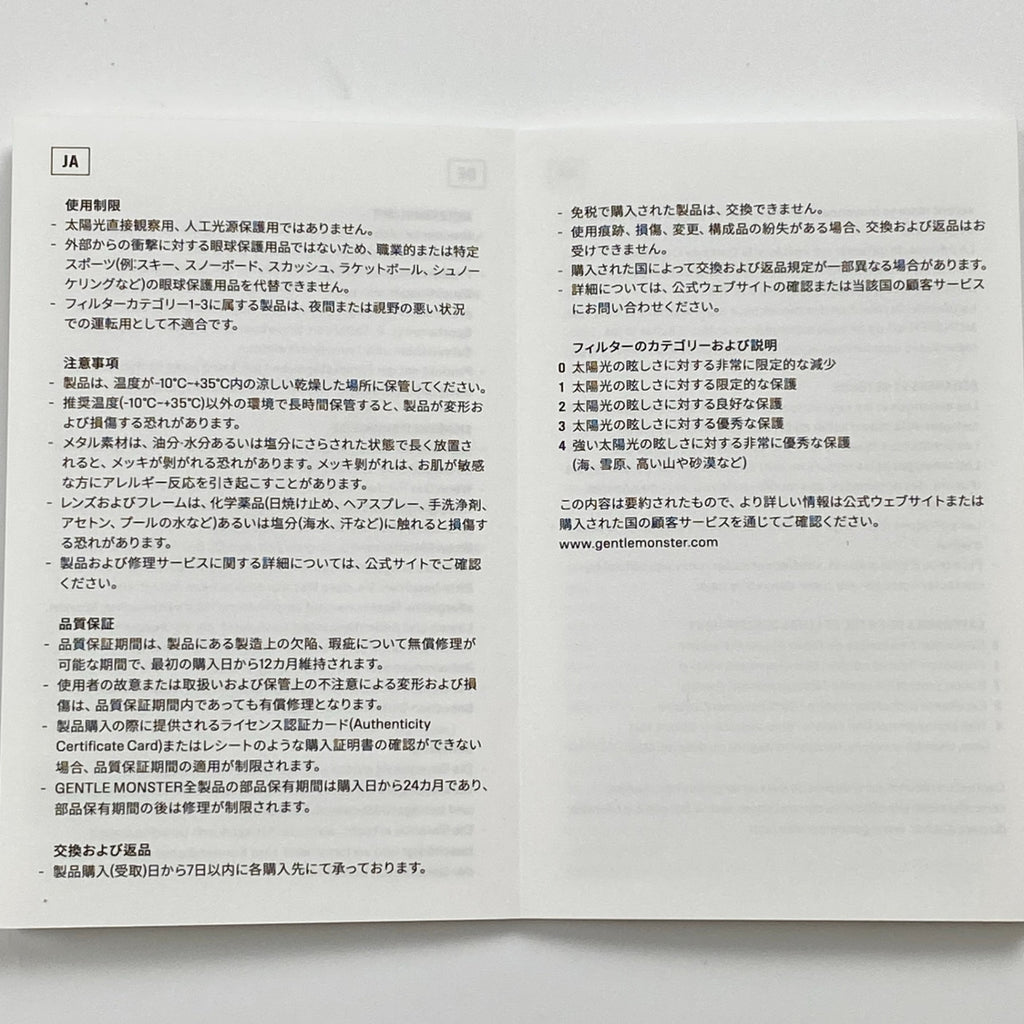 JA
使用制限
- 太陽光直接観察用、人工光源保護用ではありません。
- 外部からの衝撃に対する眼球保護用品ではないため、職業的または特定
スポーツ(例:スキー、スノーボード、スカッシュ、ラケットボール、シュノー
ケリングなど)の眼球保護用品を代替できません。
- フィルターカテゴリー1-3に属する製品は、夜間または視野の悪い状況
での運転用として不適合です。
注意事項
- 製品は、温度が-10°C~+35°C内の涼しい乾燥した場所に保管してください。
- 推奨温度(-10°C~+35°C)以外の環境で長時間保管すると、製品が変形お
よび損傷する恐れがあります。
- メタル素材は、油分·水分あるいは塩分にさらされた状態で長く放置さ
れると、メッキが剝がれる恐れがあります。メッキ剝がれは、お肌が敏感
な方にアレルギー反応を引き起こすことがあります。
- レンズおよびフレームは、化学薬品(日焼け止め、ヘアスプレー、手洗浄剤、
アセトン、プールの水など)あるいは塩分(海水、汗など)に触れると損傷す
る恐れがあります。
- 製品および修理サービスに関する詳細については、公式サイトでご確認
ください。
品質保証
- 品質保証期間は、製品にある製造上の欠陥、瑕疵について無償修理が
可能な期間で、最初の購入日から12カ月維持されます。
- 使用者の故意または取扱いおよび保管上の不注意による変形および損
傷は、品質保証期間内であっても有償修理となります。
- 製品購入の際に提供されるライセンス認証カード(Authenticity
Certificate Card)またはレシートのような購入証明書の確認ができない
場合、品質保証期間の適用が制限されます。
- GENTLE MONSTER全製品の部品保有期間は購入日から24カ月であり、
部品保有期間の後は修理が制限されます。
交換および返品
- 製品購入(受取)日から7日以内に各購入先にて承っております。
- 免税で購入された製品は、交換できません。
- 使用痕跡、損傷、変更、構成品の紛失がある場合、交換および返品はお
受けできません。
- 購入された国によって交換および返品規定が一部異なる場合があります。
- 詳細については、公式ウェブサイトの確認または当該国の顧客サービス
にお問い合わせください。
フィルターのカテゴリーおよび説明
0 太陽光の眩しさに対する非常に限定的な減少
1 太陽光の眩しさに対する限定的な保護
2 太陽光の眩しさに対する良好な保護
3 太陽光の眩しさに対する優秀な保護
4 強い太陽光の眩しさに対する非常に優秀な保護
(海、雪原、高い山や砂漠など)
この内容は要約されたもので、より詳しい情報は公式ウェブサイトまたは
購入された国の顧客サービスを通じてご確認ください。
www.gentlemonster.com